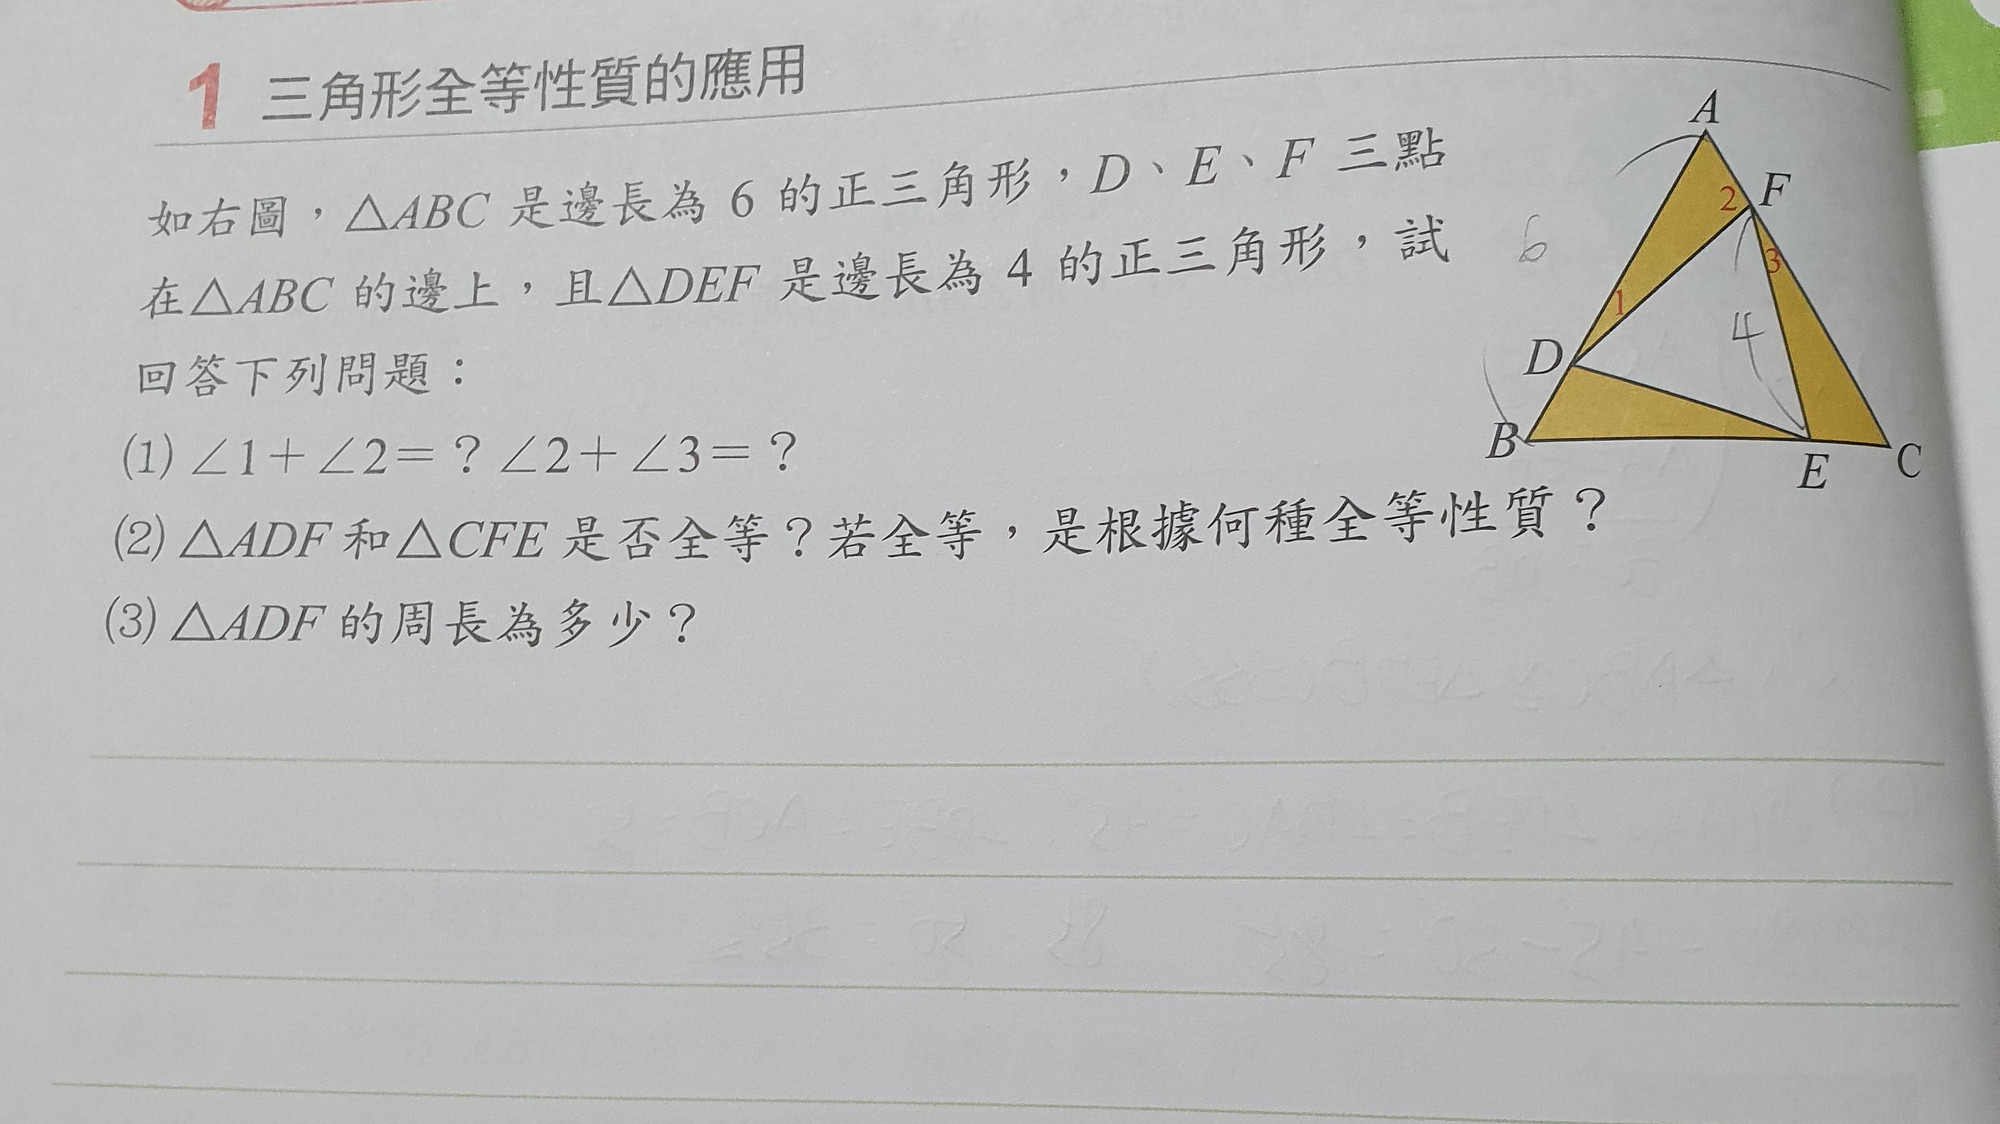 1 三角形全等性質的應用
如右圖，△ABC 是邊長為 6 的正三角形，D、E、F 三點
在△ABC 的邊上，且△DEF 是邊長為 4 的正三角形，試
回答下列問題：
(1) ∠1＋∠2＝？∠2＋∠3＝？
(2) △ADF 和△CFE 是否全等？若全等，是根據何種全等性質？
(3) △ADF 的周長為多少？
A
F
2
3
6
1
4
D
B
E
C